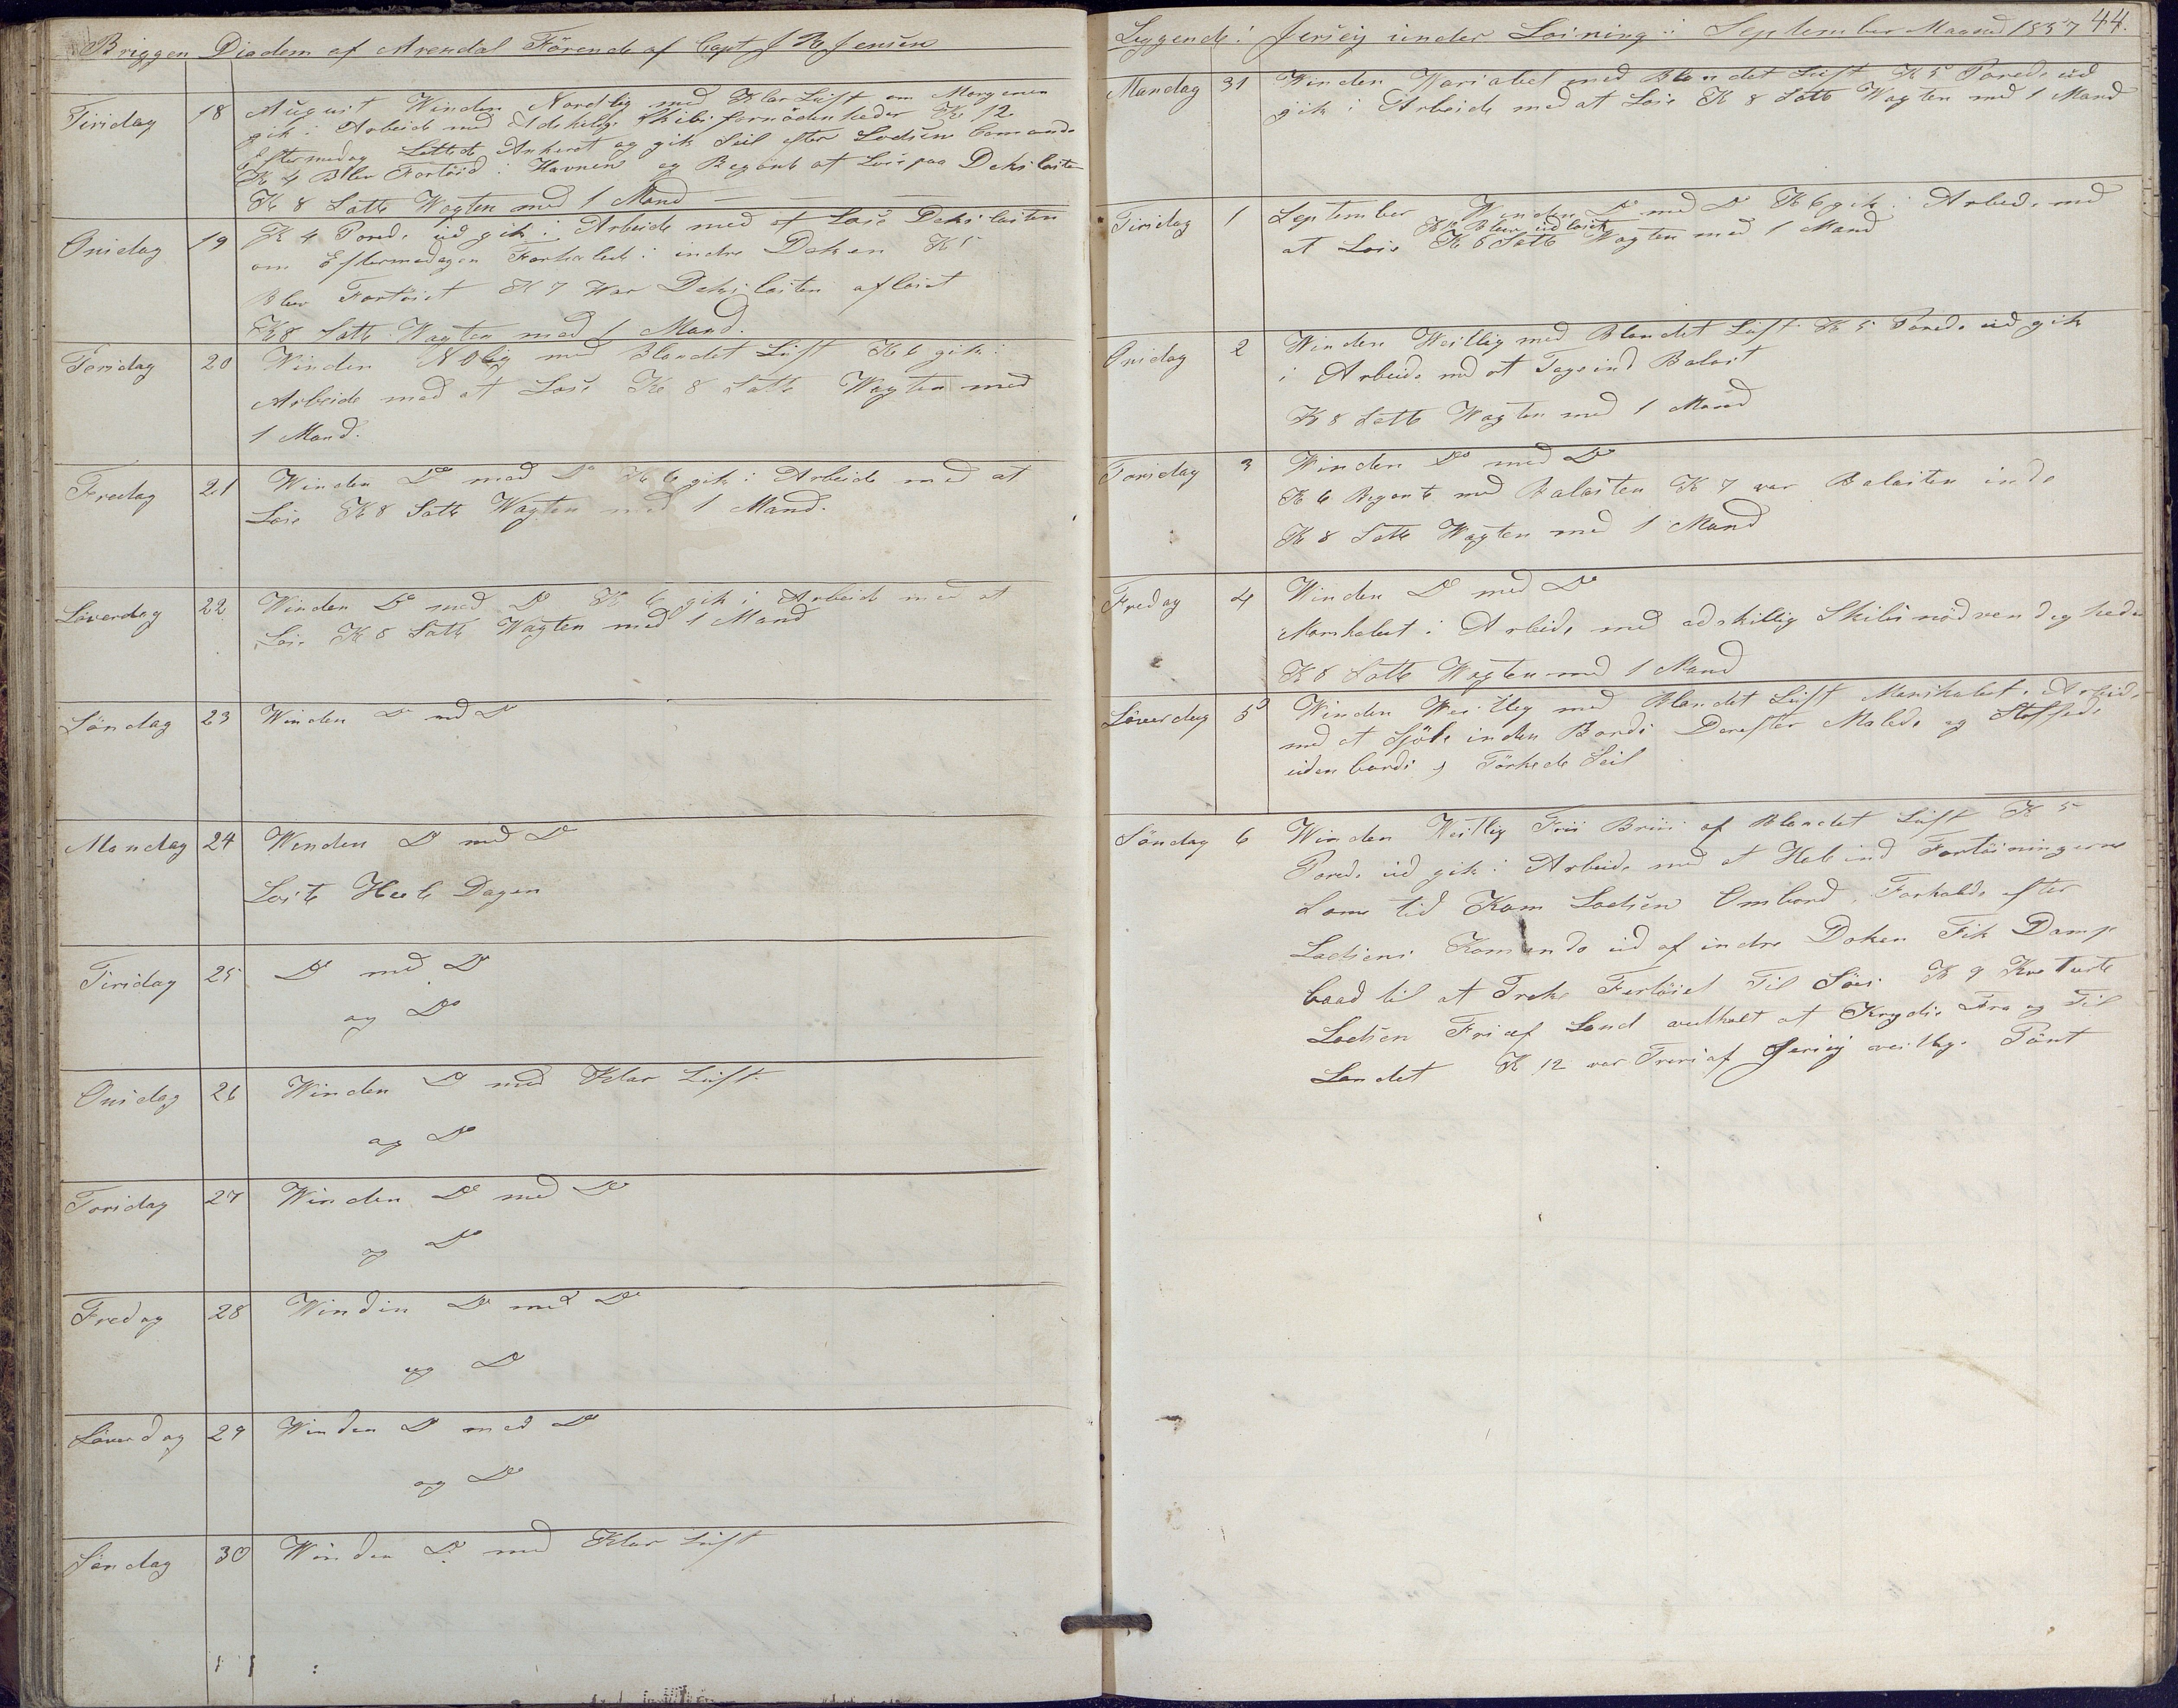 Briggen Diadem af Arendal Förende af Capt J R Jensen
Tirsdag 18 August Winden Nordlig med Klar Luft om Morgenen
gik i Arbeide med Adskelige Skibsfornödenheder Kl 12
Eftermedag Lettede Ankeret og gik Seil efter Lodsens Comando
Kl 4 Blev Fortöid i Havnen og Begönt at Losse paa Dekslasten
Kl 8 Satte Wagten med 1 Mand
Onsdag 19 Kl 4 Pored. ud gik i Arbeide med at Losse Dekslasten
om Eftermedagen Forhalede i indre Doken Kl 5
Blev Fortöiet Kl 7 War Dekslasten aflosset
Kl 8 Satte Wagten med 1 Mand.
Torsdag 20 Winden NOlig med Blandet Luft Kl 6 gik i
Arbeide med at Losse Kl 8 Satte Wagten med
1 Mand.
Fredag 21 Winden Do med Do Kl 6 gik i Arbeide med at
Losse Kl 8 Satte Wagten med 1 Mand.
Löverdag 22 Winden Do med Do Kl 6 gik i Arbeide med at
Losse Kl 8 Satte Wagten med 1 Mand
Söndag 23 Winden Do med Do
Mandag 24 Winden Do med Do
Loste Heele Dagen
Tirsdag 25 Do med Do
og Do
Onsdag 26 Winden Do med Klar Luft
og Do
Torsdag 27 Winden Do med Do
og Do
Fredag 28 Winden Do med Do
og Do
Löverdag 29 Winden Do med Do
og Do
Söndag 30 Winden Do med Klar Luft
Leggende i Jersey under Losning i September Maaned 1857 44.
Mandag 31 Winden Variabel med Blandet Luft Kl 5 Pored. ud
gik i Arbeide med at Losse Kl 8 Satte Wagten med 1 Mand
Tirsdag 1 September Winden Do med Do Kl 6 gik i Arbeid. med
Blev udlosset
at Losse Kl 8 Satte Wagten med 1 Mand
Onsdag 2 Winden Westlig med Blandet Luft Kl 5 Pored. ud gik
i Arbeide med at Tage ind Balast
Kl 8 Satte Wagten med 1 Mand
Torsdag 3 Winden Do med Do
Kl 6 Begönte med Balasten Kl 7 var Balasten inde
Kl 8 Satte Wagten med 1 Mand
Fredag 4 Winden Do med Do
Manskabet i Arbeide med adskillig Skibsnödvendigheder
Kl 8 Satte Wagten med 1 Mand
Löverdag 5 Winden Westlig med Blandet Luft Manskabet i Arbeide
med at inden Bords Derefter Malede og Staffede
uden bords, Törkede Seil
Söndag 6 Winden Westlig Frii Briis af Blandet Luft Kl 5
Pored. ud gik i Arbeide med at Hale ind Fortöiningerne
Same tid Kom Lodsen Ombord, Forhalede efter
Lodsens Komando ud af indre Doken Fik Damp
baad til at Trekke Fartöiet Til Söes Kl 9 Kvarterte
Lodsen Fri af Land vedholt at Krydse Fra og Til
Landet Kl 12 var Tvers af Jersey vestlige Pönt